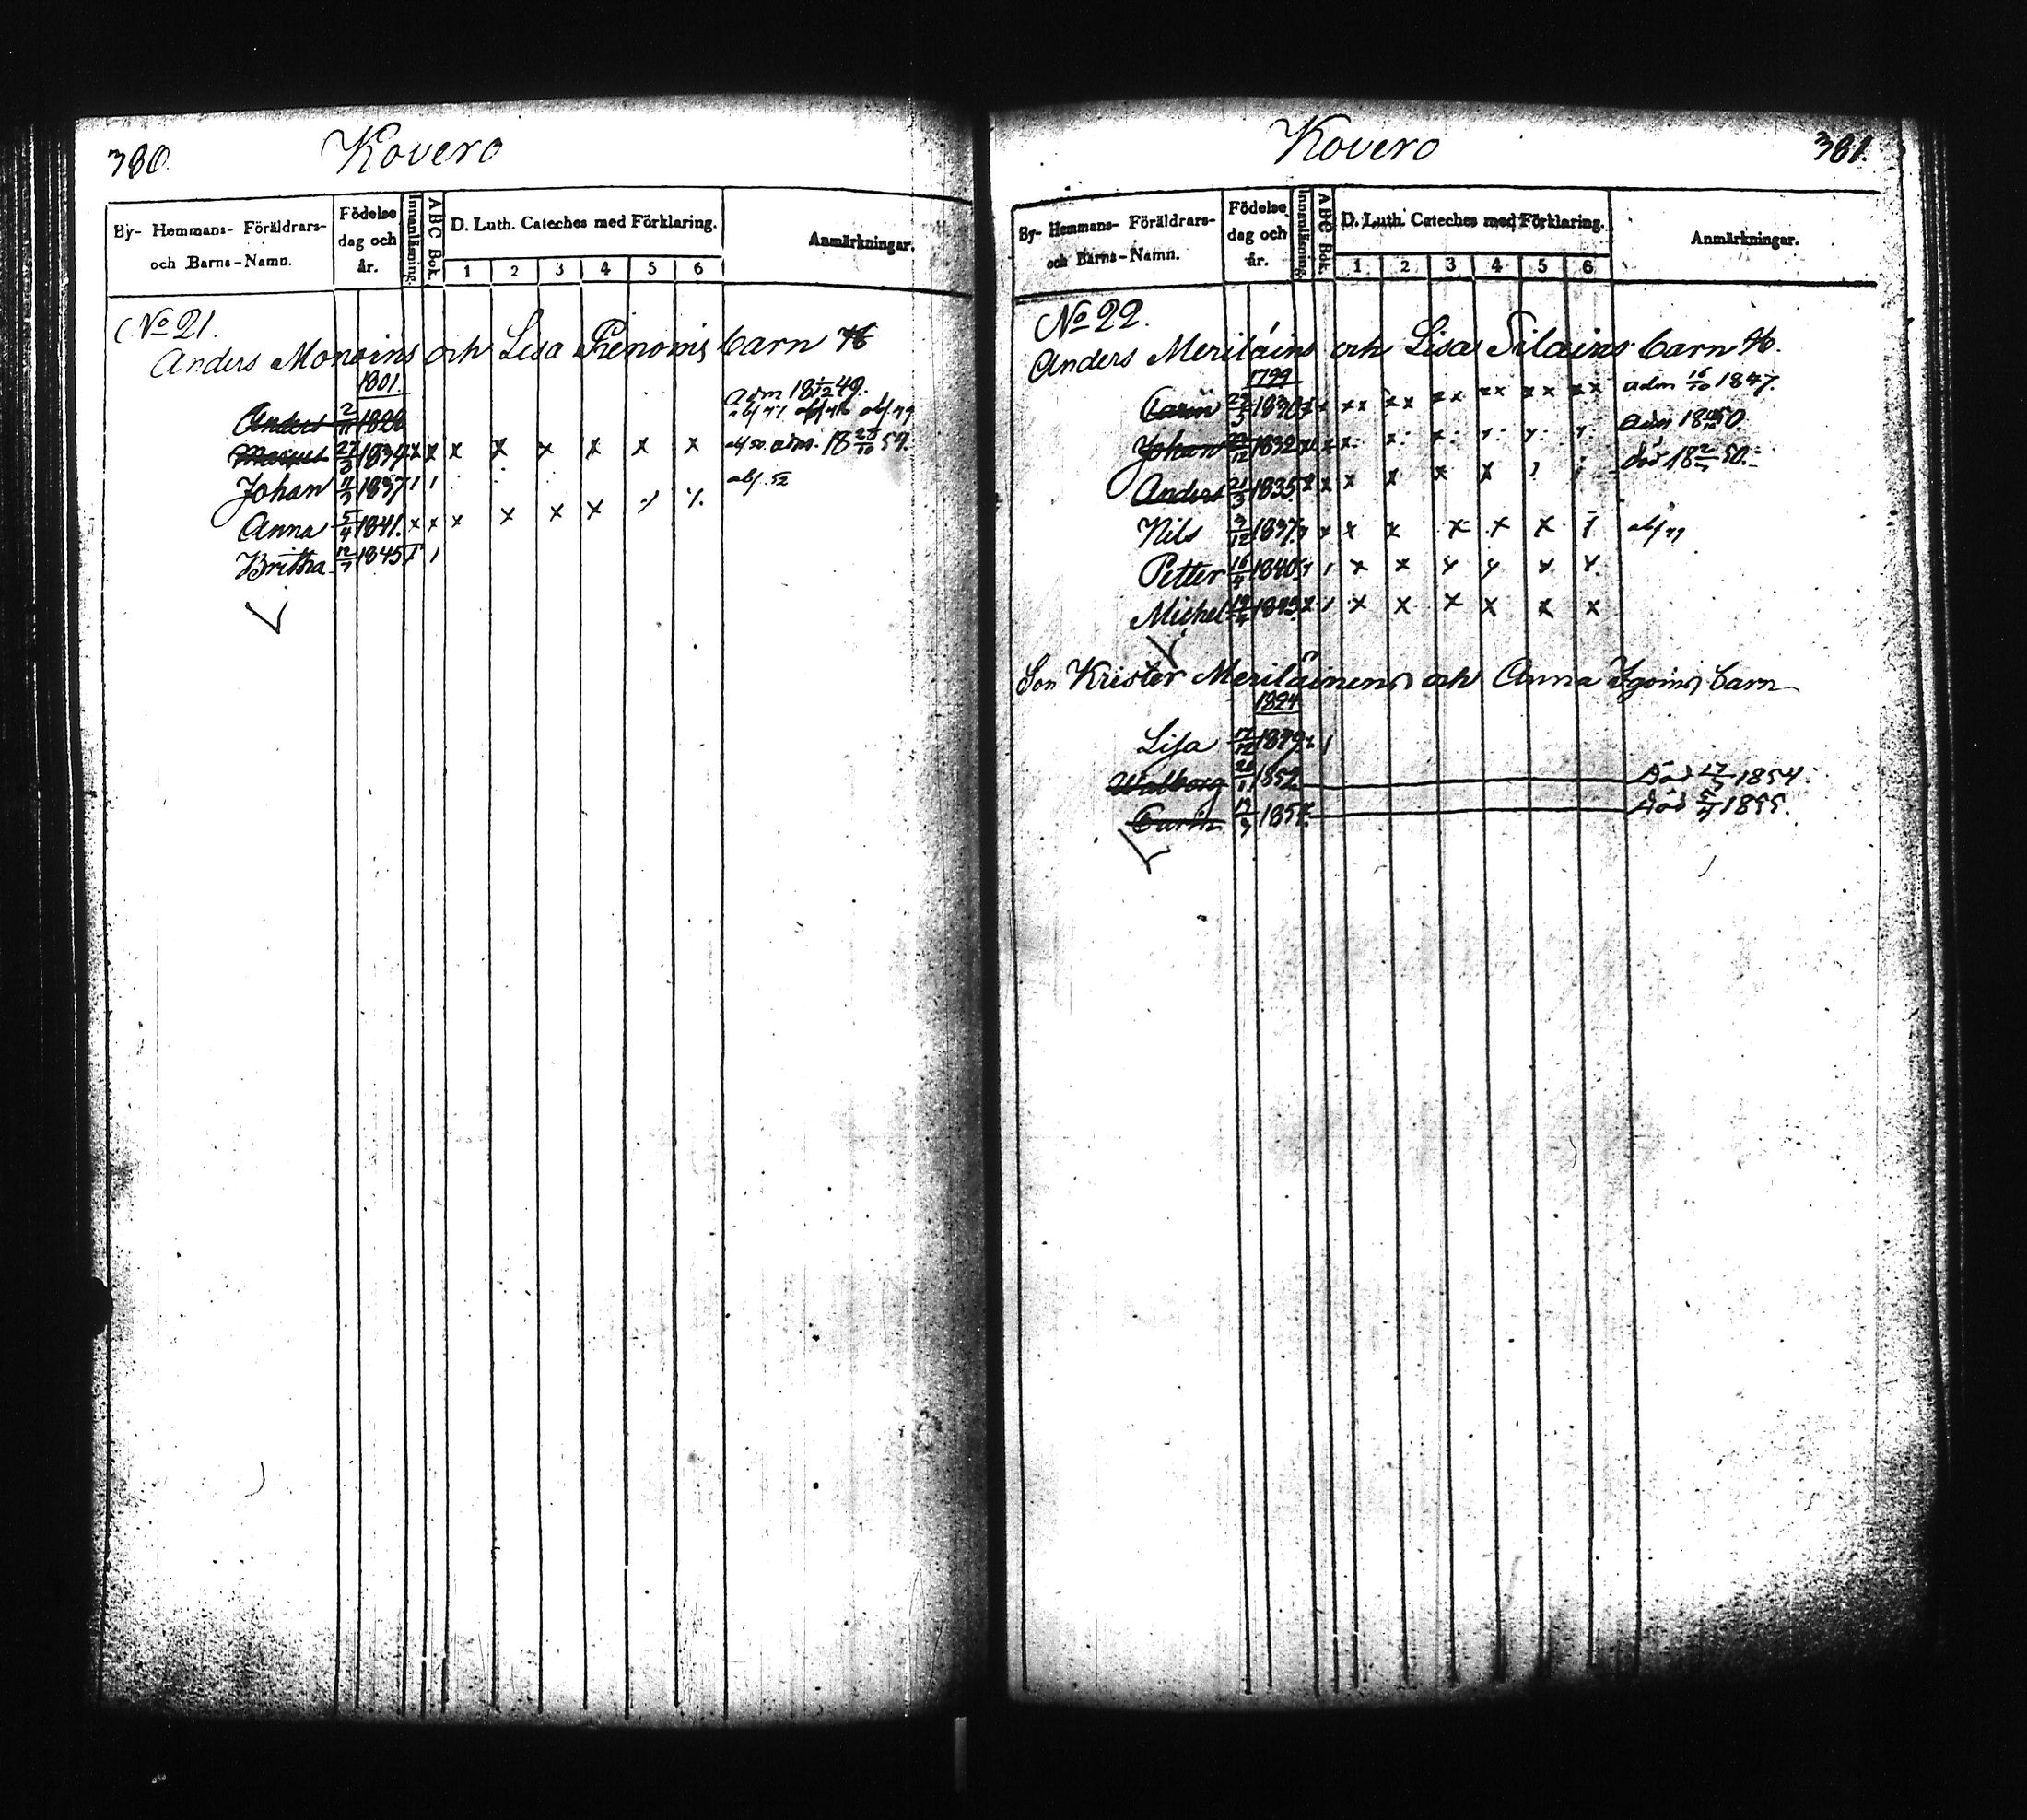 380.
Kovero
By- Hemmans- Föräldrars-
och Barns-Namn.
Födelse
dag och
år.
Innanläsning.
A B C Bok.
D. Luth. Cateches med Förklaring.
1 2 3 4 5 6
Anmärkningar.
No 21.
Anders Monoins och Lisa barn
1801.
Anders 2/11 1826 adm 18 12 49.
abf 47 abf 48 abf 49
27/3 1834 x x x x x x x x abf 50. adm. 18 28/10 54.
Johan 11/3 1837 1 1 abf. 52
Anna 5/4 1841. x x x x x x
Brittha 12/7 1845 1 1
381.
Kovero
By- Hemmans- Föräldrars-
och Barns-Namn.
Födelse
dag och
år.
Innanläsning.
A B C Bok.
D. Luth. Cateches med Förklaring.
1 2 3 4 5 6
Anmärkningar.
No 22.
Anders Meriläins och Lisa Silains barn
1799
Carin 1830 xx xx xx xx xx xx adm 16/10 1847.
Johan 22/12 1832 adm 18 50
Anders 21/3 1835 x x x x x x död 18 50.
Nils 3/12 1837 x x x x x abf 49
Petter 16/4 1840 1 x x
Michel 1843 x 1 x x x x x x
Son Krister Meriläinens och Anna barn
1824
Lisa 17/12 1849 1
Walborg 26/1 1852. Död 17 1854.
Carin 19/3 1854. Död 1855.